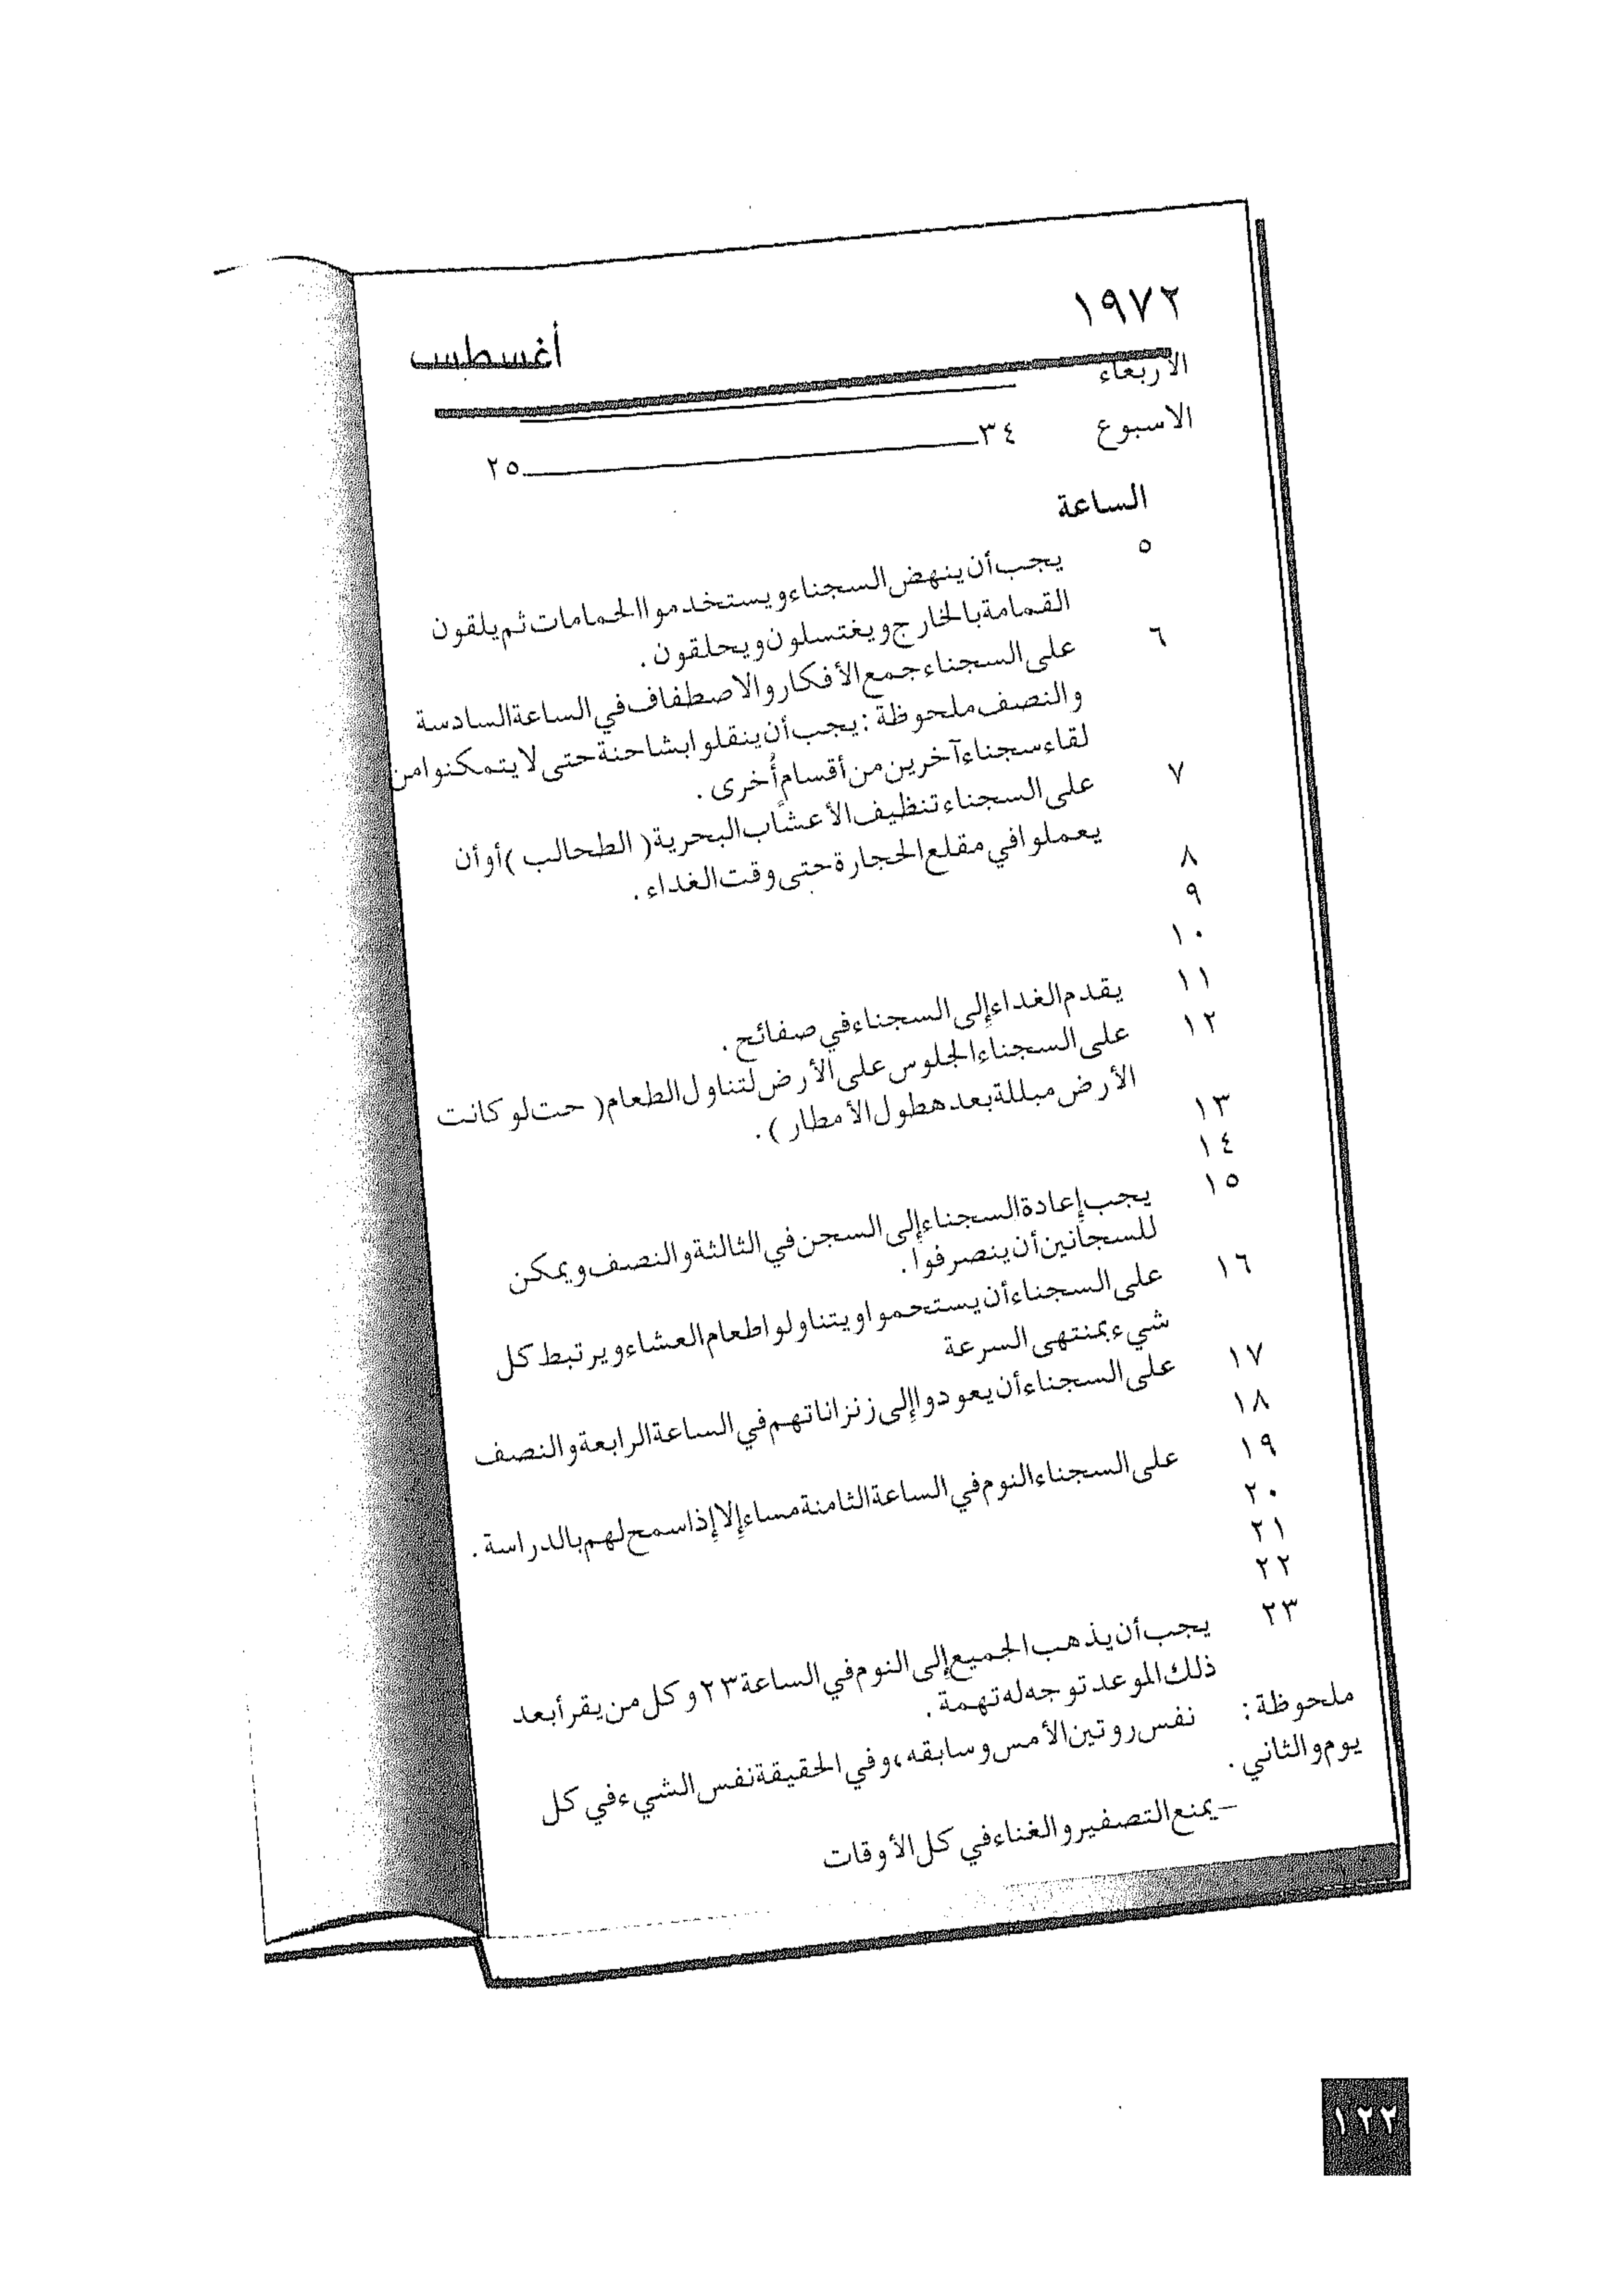 ١٩٧٢
أغسطس
الاربعاء
الاسبوع ٣٤ ٢٥
الساعة
٥ يجب أن ينهض السجناء ويستخدموا الحمامات ثم يلقون
القمامة بالخارج ويغتسلون ويحلقون .
٦ على السجناء جمع الأفكار والاصطفاف في الساعة السادسة
والنصف ملحوظة : يجب أن ينقلوا بشاحنة حتى لا يتمكنوا من
لقاء سجناء آخرين من أقسام أُخرى .
٧ على السجناء تنظيف الأعشاب البحرية ( الطحالب ) أو أن
يعملوا في مقلع الحجارة حتى وقت الغداء .
٨
٩
١٠
١١ يقدم الغداء إلى السجناء في صفائح .
١٢ على السجناء الجلوس على الأرض لتناول الطعام ( حت لو كانت
الأرض مبللة بعد هطول الأمطار ) .
١٣
١٤
١٥ يجب إعادة السجناء إلى السجن في الثالثة والنصف ويمكن
للسجانين أن ينصرفوا .
١٦ على السجناء أن يستحموا ويتناولوا طعام العشاء ويرتبط كل
شيء بمنتهى السرعة
١٧ على السجناء أن يعودوا إلى زنزاناتهم في الساعة الرابعة والنصف
١٨
١٩ على السجناء النوم في الساعة الثامنة مساء إلا إذا سمح لهم بالدراسة .
٢٠
٢١
٢٢
٢٣ يجب أن يذهب الجميع إلى النوم في الساعة ٢٣ وكل من يقرأ بعد
ذلك الموعد توجه له تهمة .
ملحوظة : نفس روتين الأمس وسابقه ، وفي الحقيقة نفس الشيء في كل
يوم والثاني .
– يمنع التصفير والغناء في كل الأوقات
١٢٢